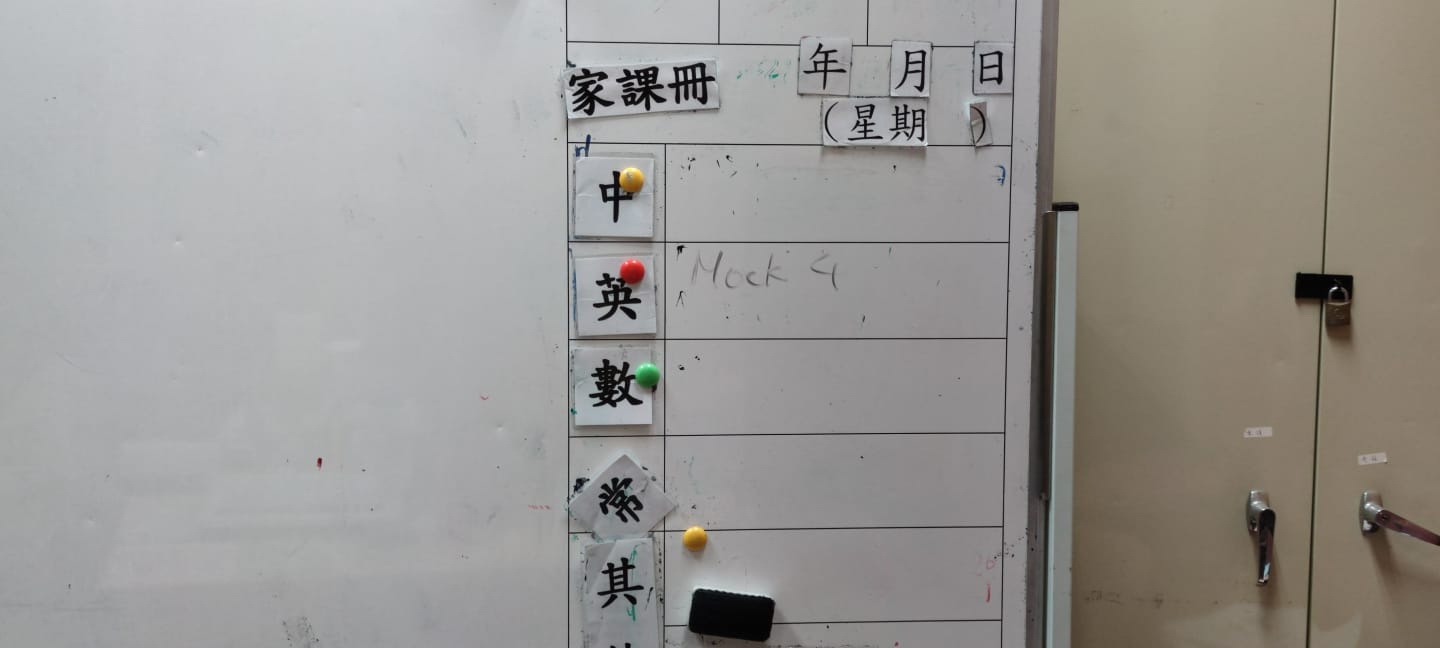 家課冊 年 月 日
(星期 )
中
英 Mock 4
數
常
其